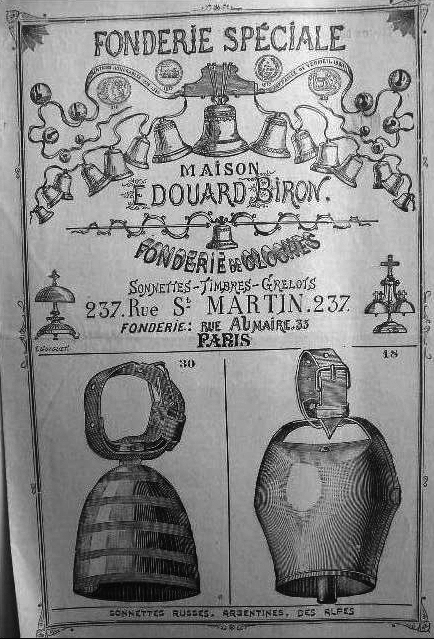 FONDERIE SPÉCIALE
MAISON
EDOUARD BIRON.
FONDERIE DE CLOCHES
SONNETTES-TIMBRES-GRELOTS
237. Rue St. MARTIN. 237.
FONDERIE: RUE AUMAIRE. 33
PARIS
30
18
SONNETTES RUSSES, ARGENTINES, DES ALPES